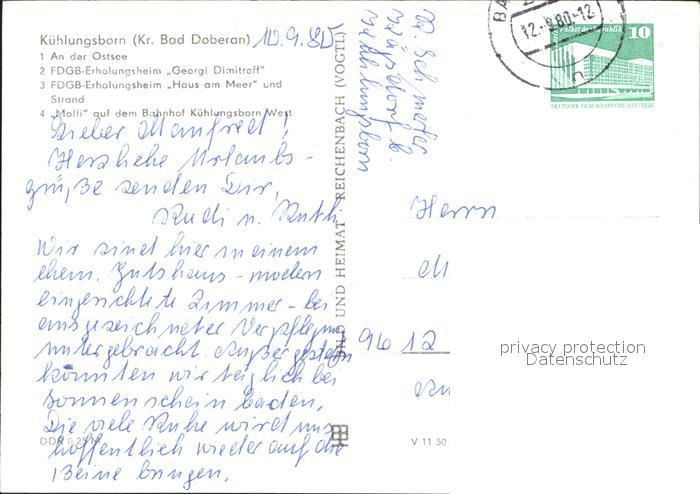 Kühlungsborn (Kr. Bad Doberan) 10.9.80
1 An der Ostsee
2 FDGB-Erholungsheim „Georgi Dimitroff"
3 FDGB-Erholungsheim „Haus am Meer" und
Strand
4 „Molli" auf dem Bahnhof Kühlungsborn West
Lieber Manfred!
Herzliche Urlaubs-
grüße senden Dir,
Rudi u. Ruth
Wir sind hier in einem
ehem. Gutshaus - modern
eingerichtete Zimmer - bei
ausgezeichneter Verpflegung
untergebracht. Außer gestern
konnten wir täglich bei
Sonnenschein baden.
Die viele Ruhe wird uns
hoffentlich wieder auf die
Beine bringen.
DDR 0,25 M
BILD UND HEIMAT REICHENBACH (VOGTL)
b.
Kühlungsborn
12.-9.80-12
Palast der Republik 10
DEUTSCHE DEMOKRATISCHE REPUBLIK
Herrn
M
9612
V 11 50
privacy protection
Datenschutz